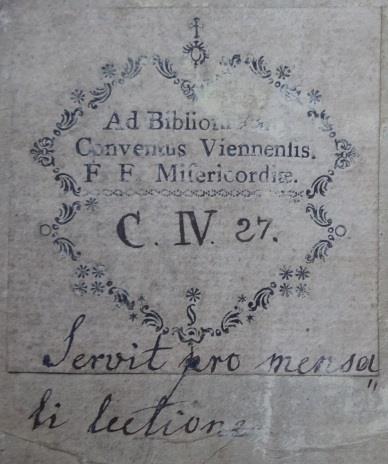 Ad Biblioth
Conventus Viennensis.
F F. Miſericordiæ.
C. IV. 27.
Servit pro mensa
li lectione